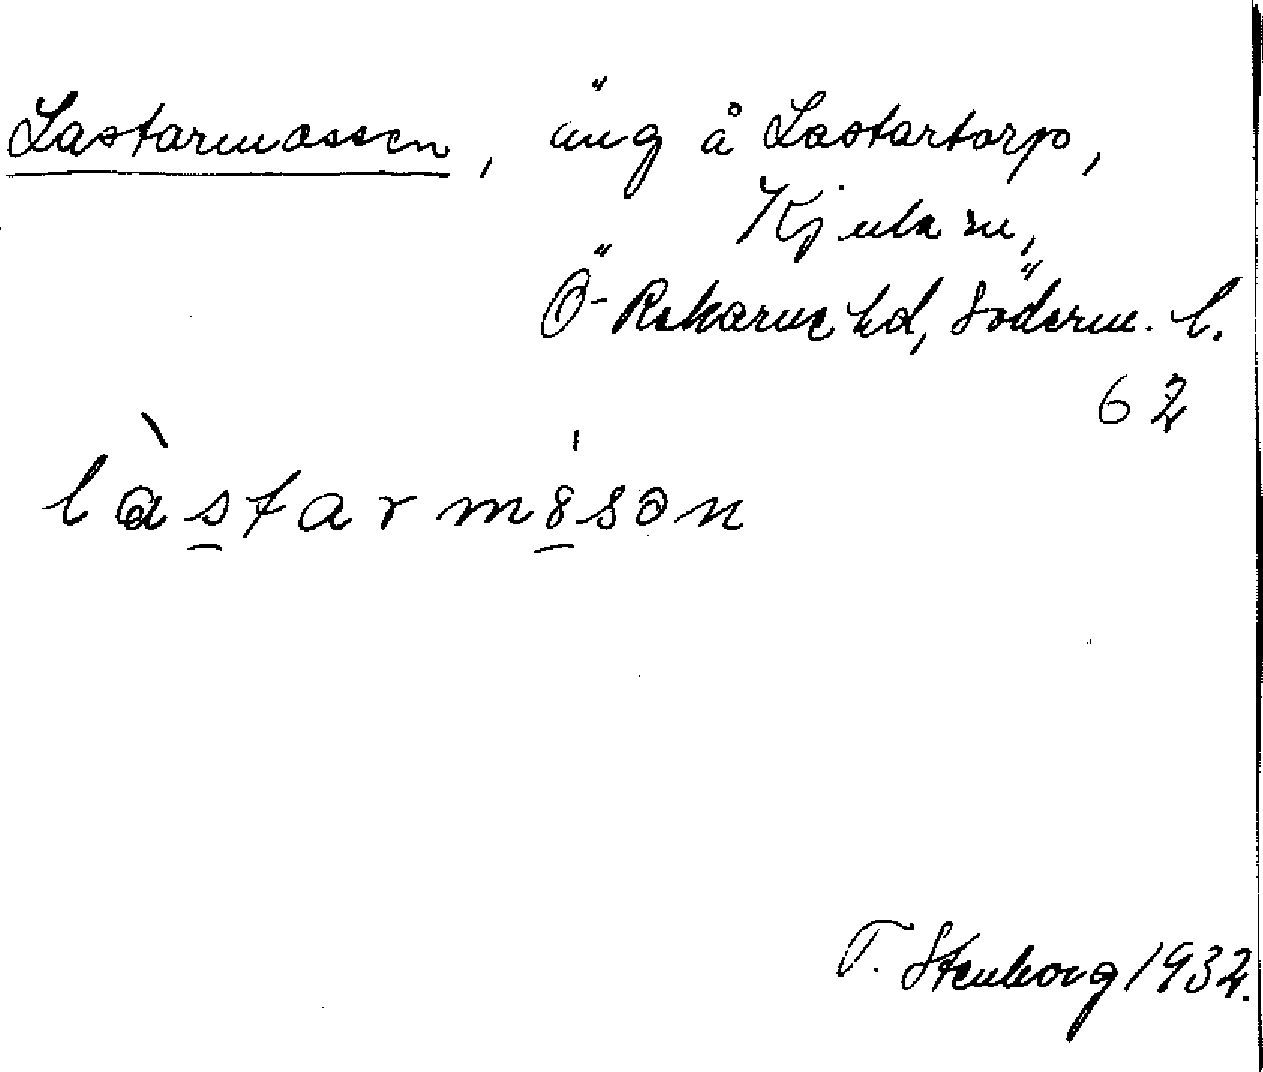 Lastarmossen, äng å Lastartorp,
Kjula sn,
Ö-Rekarne hd, Söderm. l.
62
làstarmósən
T. Stenborg 1932.